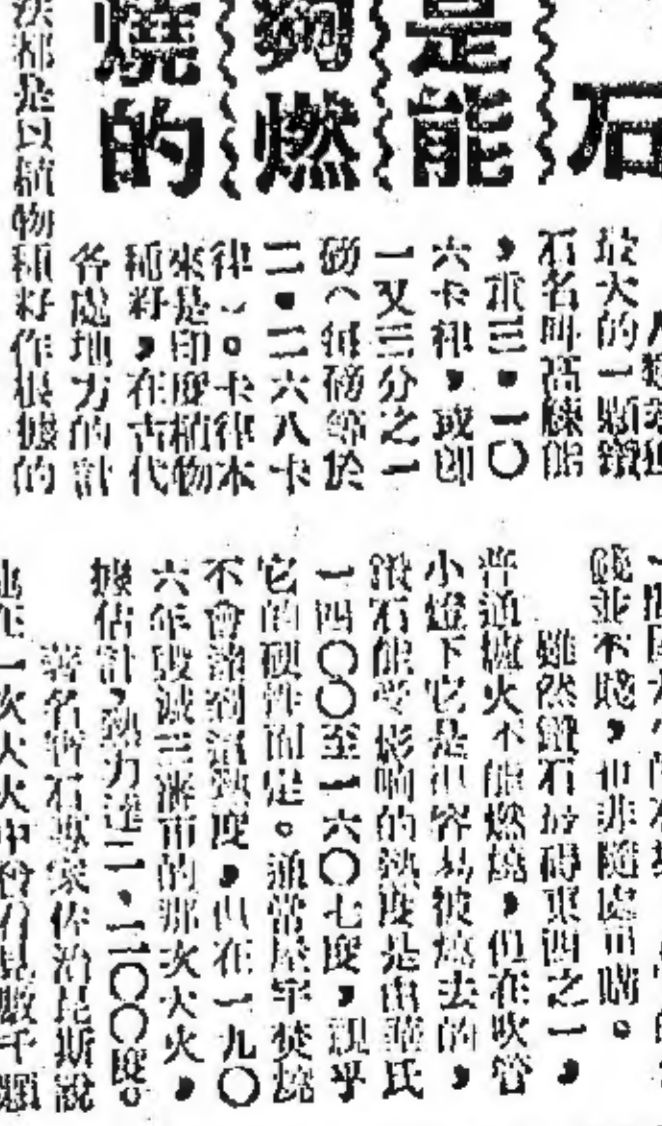 石
是能
夠燃
燒的
最大的一顆鑽
石名叫高䅼能
，重三‧一〇
六卡律，或即
一又三分之一
磅（每磅等於
二‧二六八卡
律）。卡律本
來是印度植物
種籽，在古代
各處地方的計
法都是以植物種籽作根據的
錢並不賤，但非隨處可購。
雖然鑽石是最硬東西之一，
普通爐火不能燃燒，但在吹管
小燈下它是很容易被燒去的，
鑽石能受影响的熱度是由華氏
一四〇〇至一六〇七度，視乎
它的硬性而定。通常屋宇焚燒
不會達到這熱度，但在一九〇
六年毀滅三藩市的那次大火，
據估計，熱力達二‧二〇〇度。
著名寶石專家佐治昆斯說
他在一次大火中會看見數千顆